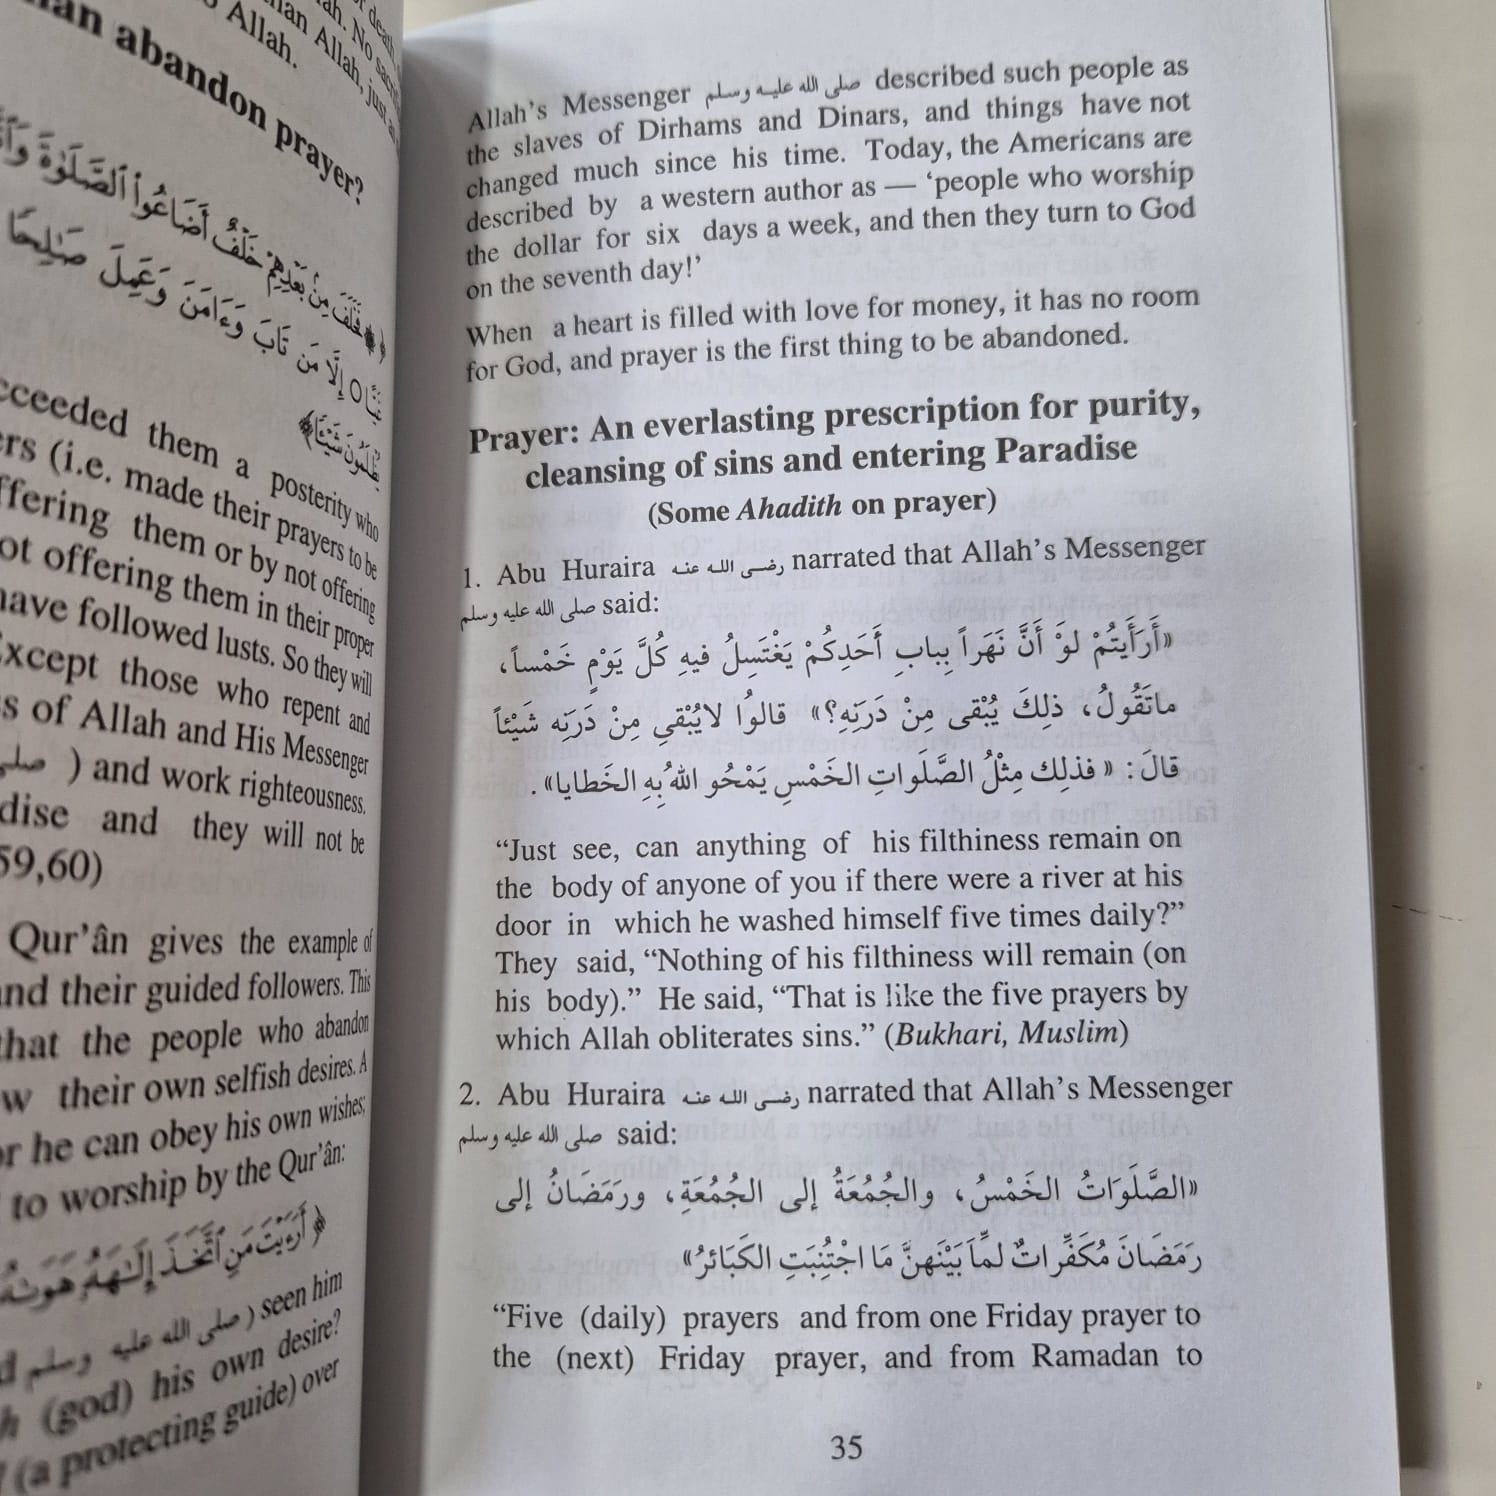 Allah.
an abandon prayer?
﴿﴾فَخَلَفَ مِنۢ بَعْدِهِمْ خَلْفٌ أَضَاعُوا۟ ٱلصَّلَوٰةَ
إِلَّا مَن تَابَ وَءَامَنَ وَعَمِلَ صَٰلِحًا
them a posterity who
(i.e. made their prayers to be
them or by not offering
offering them in their proper
have followed lusts. So they will
those who repent and
of Allah and His Messenger
) and work righteousness.
and they will not be
59,60)
Qur’ân gives the example of
and their guided followers. This
that the people who abandon
their own selfish desires. A
he can obey his own wishes;
to worship by the Qur’ân:
صلى الله عليه وسلم ) seen him
(god) his own desire?
(a protecting guide) over
Allah’s Messenger صلى الله عليه وسلم described such people as
the slaves of Dirhams and Dinars, and things have not
changed much since his time. Today, the Americans are
described by a western author as — ‘people who worship
the dollar for six days a week, and then they turn to God
on the seventh day!’
When a heart is filled with love for money, it has no room
for God, and prayer is the first thing to be abandoned.
Prayer: An everlasting prescription for purity,
cleansing of sins and entering Paradise
(Some Ahadith on prayer)
1. Abu Huraira رضى الله عنه narrated that Allah’s Messenger
صلى الله عليه وسلم said:
«أَرَأَيتُمْ لوَْ أَنَّ نَهَراً بِبابِ أَحَدِكُمْ يَغْتَسِلُ فيهِ كُلَّ يَوْمٍ خَمْساً،
ماتَقُولُ، ذلِكَ يُبْقى مِنْ دَرَنِهِ؟» قالوُا لايُبْقي مِنْ دَرَنِه شَيْئاً
قالَ : «فذلِك مِثْلُ الصَّلَواتِ الخَمْسِ يَمْحُو اللهُ بِهِ الخَطايا».
“Just see, can anything of his filthiness remain on
the body of anyone of you if there were a river at his
door in which he washed himself five times daily?”
They said, “Nothing of his filthiness will remain (on
his body).” He said, “That is like the five prayers by
which Allah obliterates sins.” (Bukhari, Muslim)
2. Abu Huraira رضى الله عنه narrated that Allah’s Messenger
صلى الله عليه وسلم said:
«الصَّلَوَاتُ الخَمْسُ، والجُمُعَةُ إلى الجُمُعَةِ، ورَمَضَانُ إلى
رَمَضَانَ مُكَفِّراتٌ لمَِّا بَيْنَهنَّ مَا اجْتُنِبَتِ الكَبَائرُ»
“Five (daily) prayers and from one Friday prayer to
the (next) Friday prayer, and from Ramadan to
35